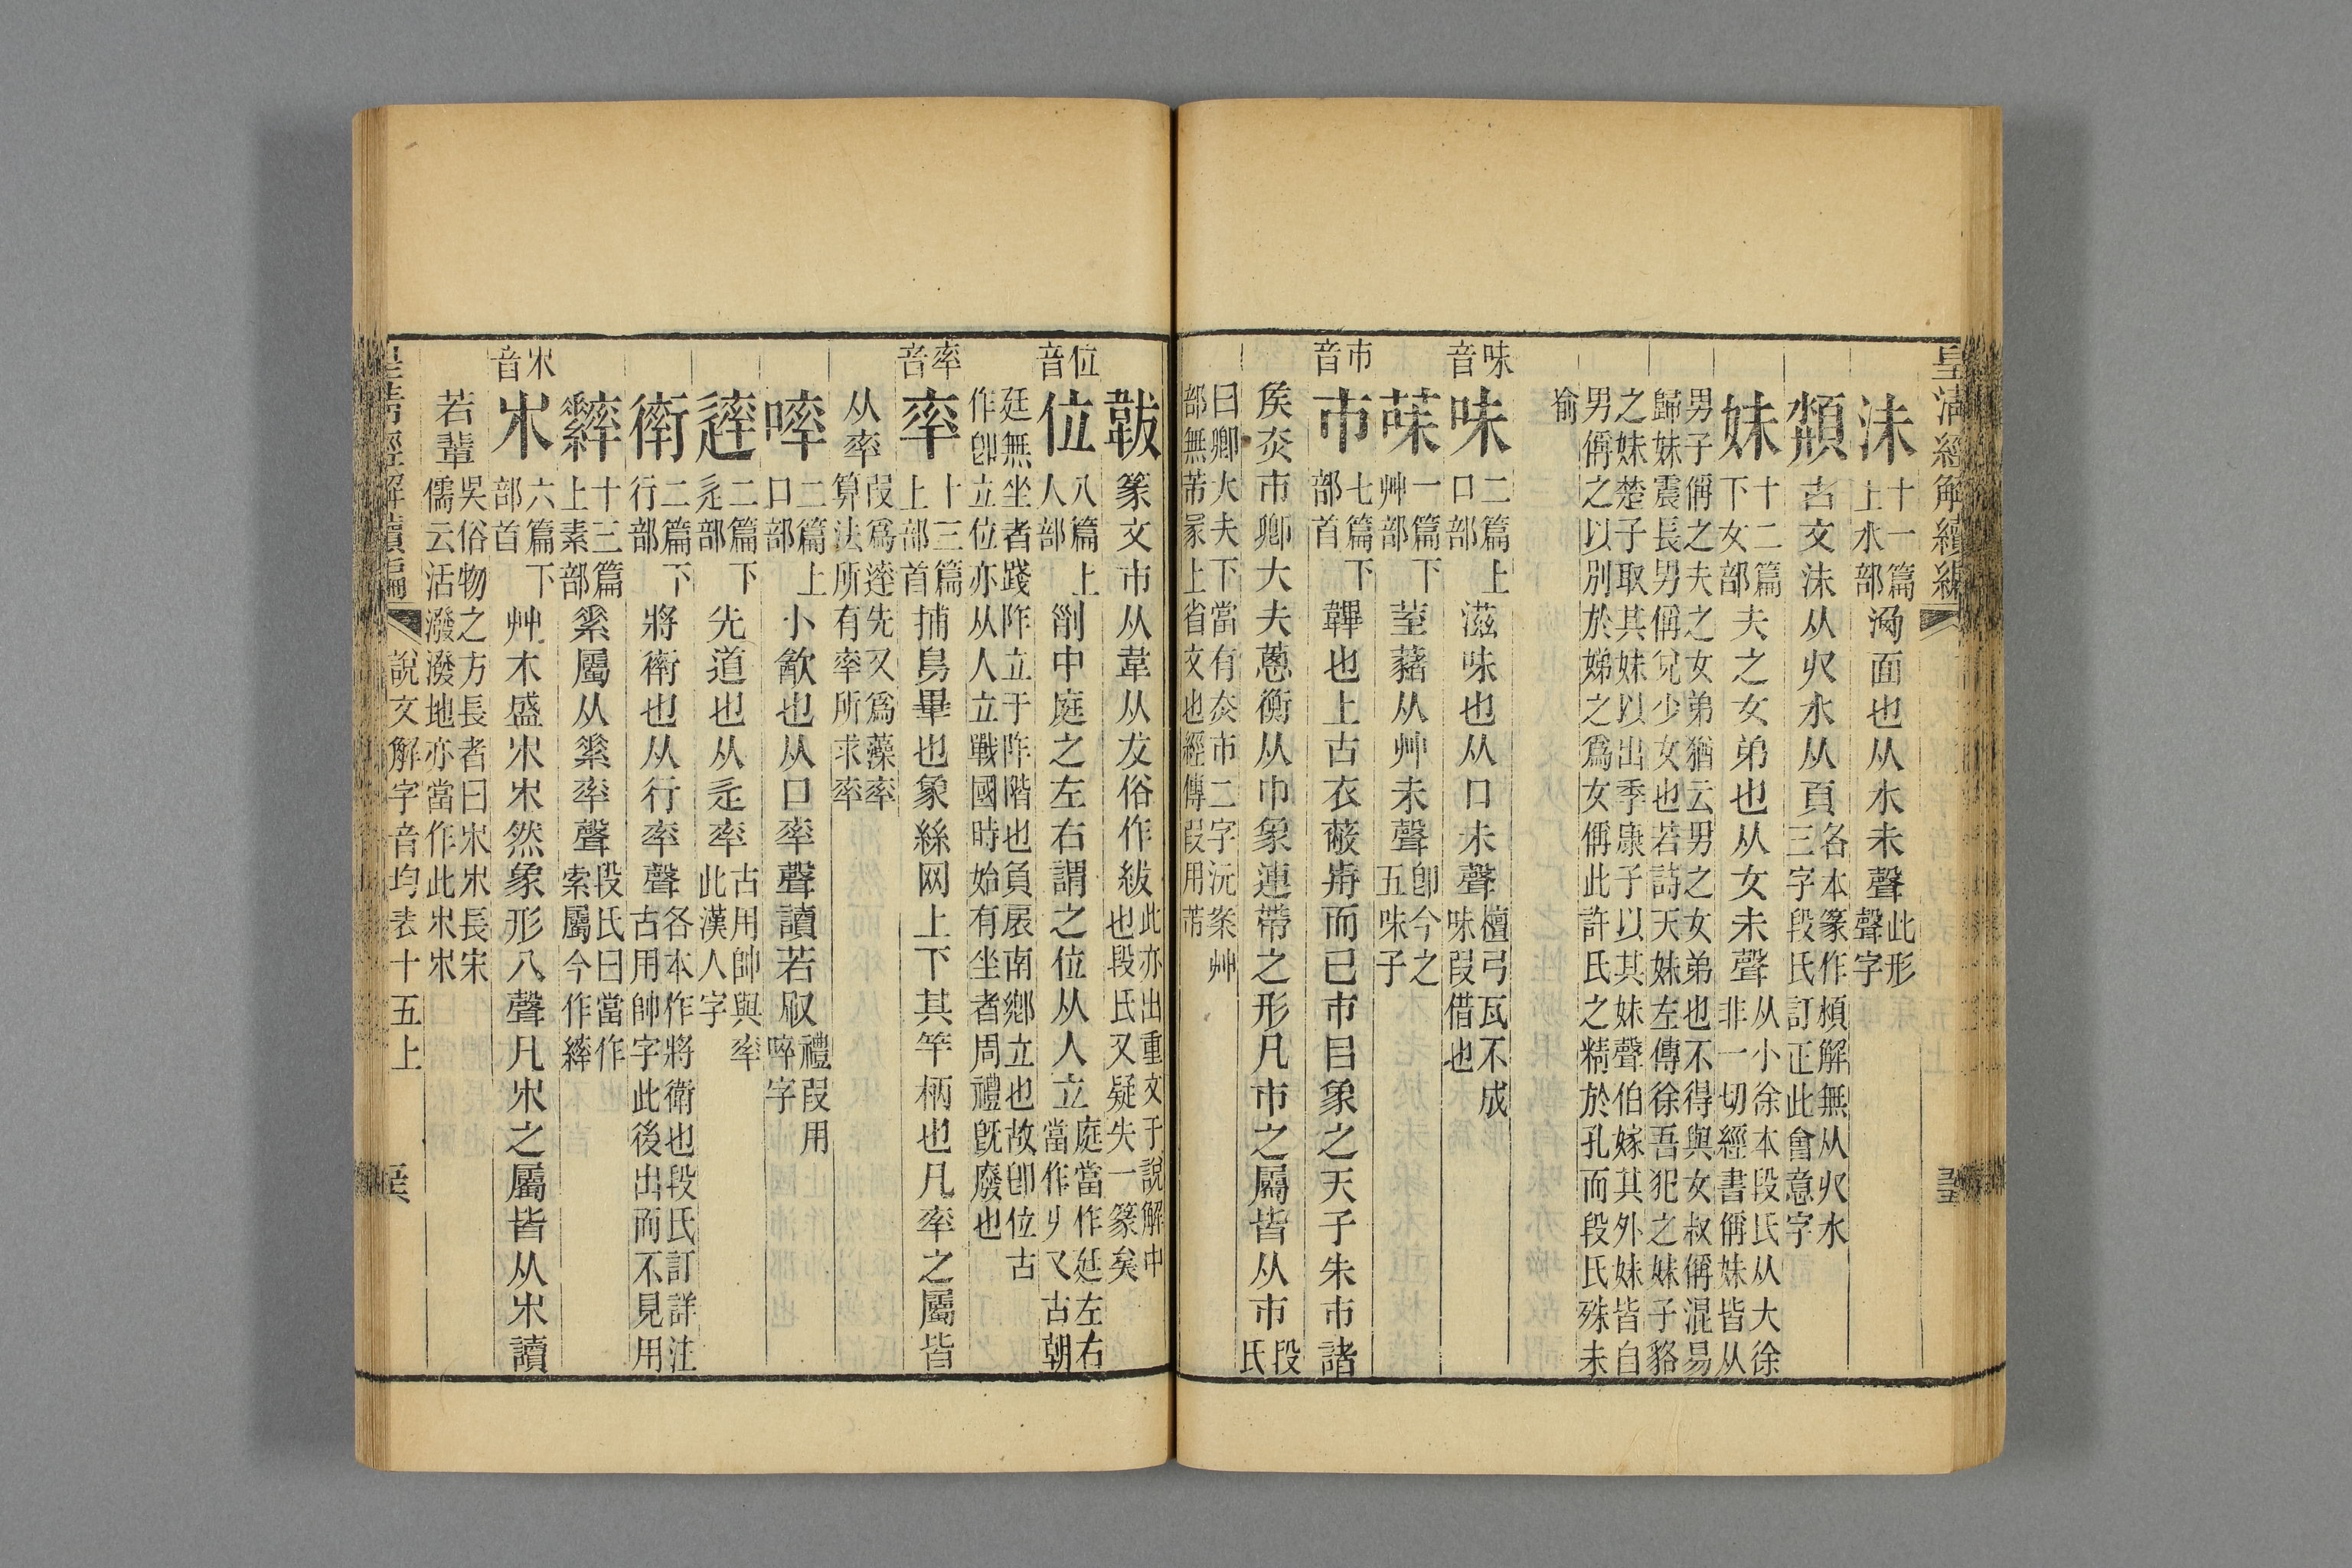 皇清經解續編
沬十一篇上水部沬面也从水未聲此形聲字
頮古文沬从𠬞水从頁各本篆作湏解無从𠬞水三字段氏訂正此會意字
妹十二篇下女部夫之女弟也从女未聲从小徐本段氏从大徐非一切經書偁妹皆从
男子偁之夫之女弟猶云男之女弟也不得與女叔偁混易歸妹震長男偁兌少女也若詩天妹左傳徐吾犯之妹子貉
之妹楚子取其妹以出季康子以其妹聲伯嫁其外妹皆自男偁之以別於娣之爲女偁此許氏之精於孔而段氏殊未
喻
味音
味二篇上口部滋味也从口未聲檀弓瓦不成味叚借也
菋一篇下艸部荎藸从艸未聲卽今之五味子
巿音
巿七篇下部首韠也上古衣蔽歬而已巿㠯象之天子朱巿諸
矦赤巿卿大夫蔥衡从巾象連帶之形凡巿之屬皆从巿段氏
曰卿大夫下當有赤巿二字沅案艸部無芾冡上省文也經傳叚用芾
韍篆文巿从韋从犮俗作紱此亦出重文于說解中也段氏又疑失一篆矣
位音
位八篇上人部𠛱中庭之左右謂之位从人立庭當作廷左右當作𠂇又古朝
廷無坐者踐阼立于阼階也負扆南鄉立也故卽位古作卽立位亦从人立戰國時始有坐者周禮旣廢也
率音
率十三篇上部首捕鳥畢也象絲网上下其竿柄也凡率之屬皆
从率叚爲䢦先又爲藻率算法所有率所求率
㗚二篇上口部小㱃也从口率聲讀若㕞禮叚用啐字
䢦二篇下辵部先道也从辵率古用帥與率此漢人字
衛二篇下行部將衛也从行率聲各本作將衛也段氏訂詳注古用帥字此後出而不見用
䌦十三篇上素部素屬从素率聲段氏曰當作索屬今作繂
𣎵音
𣎵六篇下部首艸木盛𣎵𣎵然象形八聲凡𣎵之屬皆从𣎵讀
若輩吳俗物之方長者曰𣎵𣎵長宋儒云活潑潑地亦當作此𣎵𣎵
皇清經解續編
說文解字音均表十五上